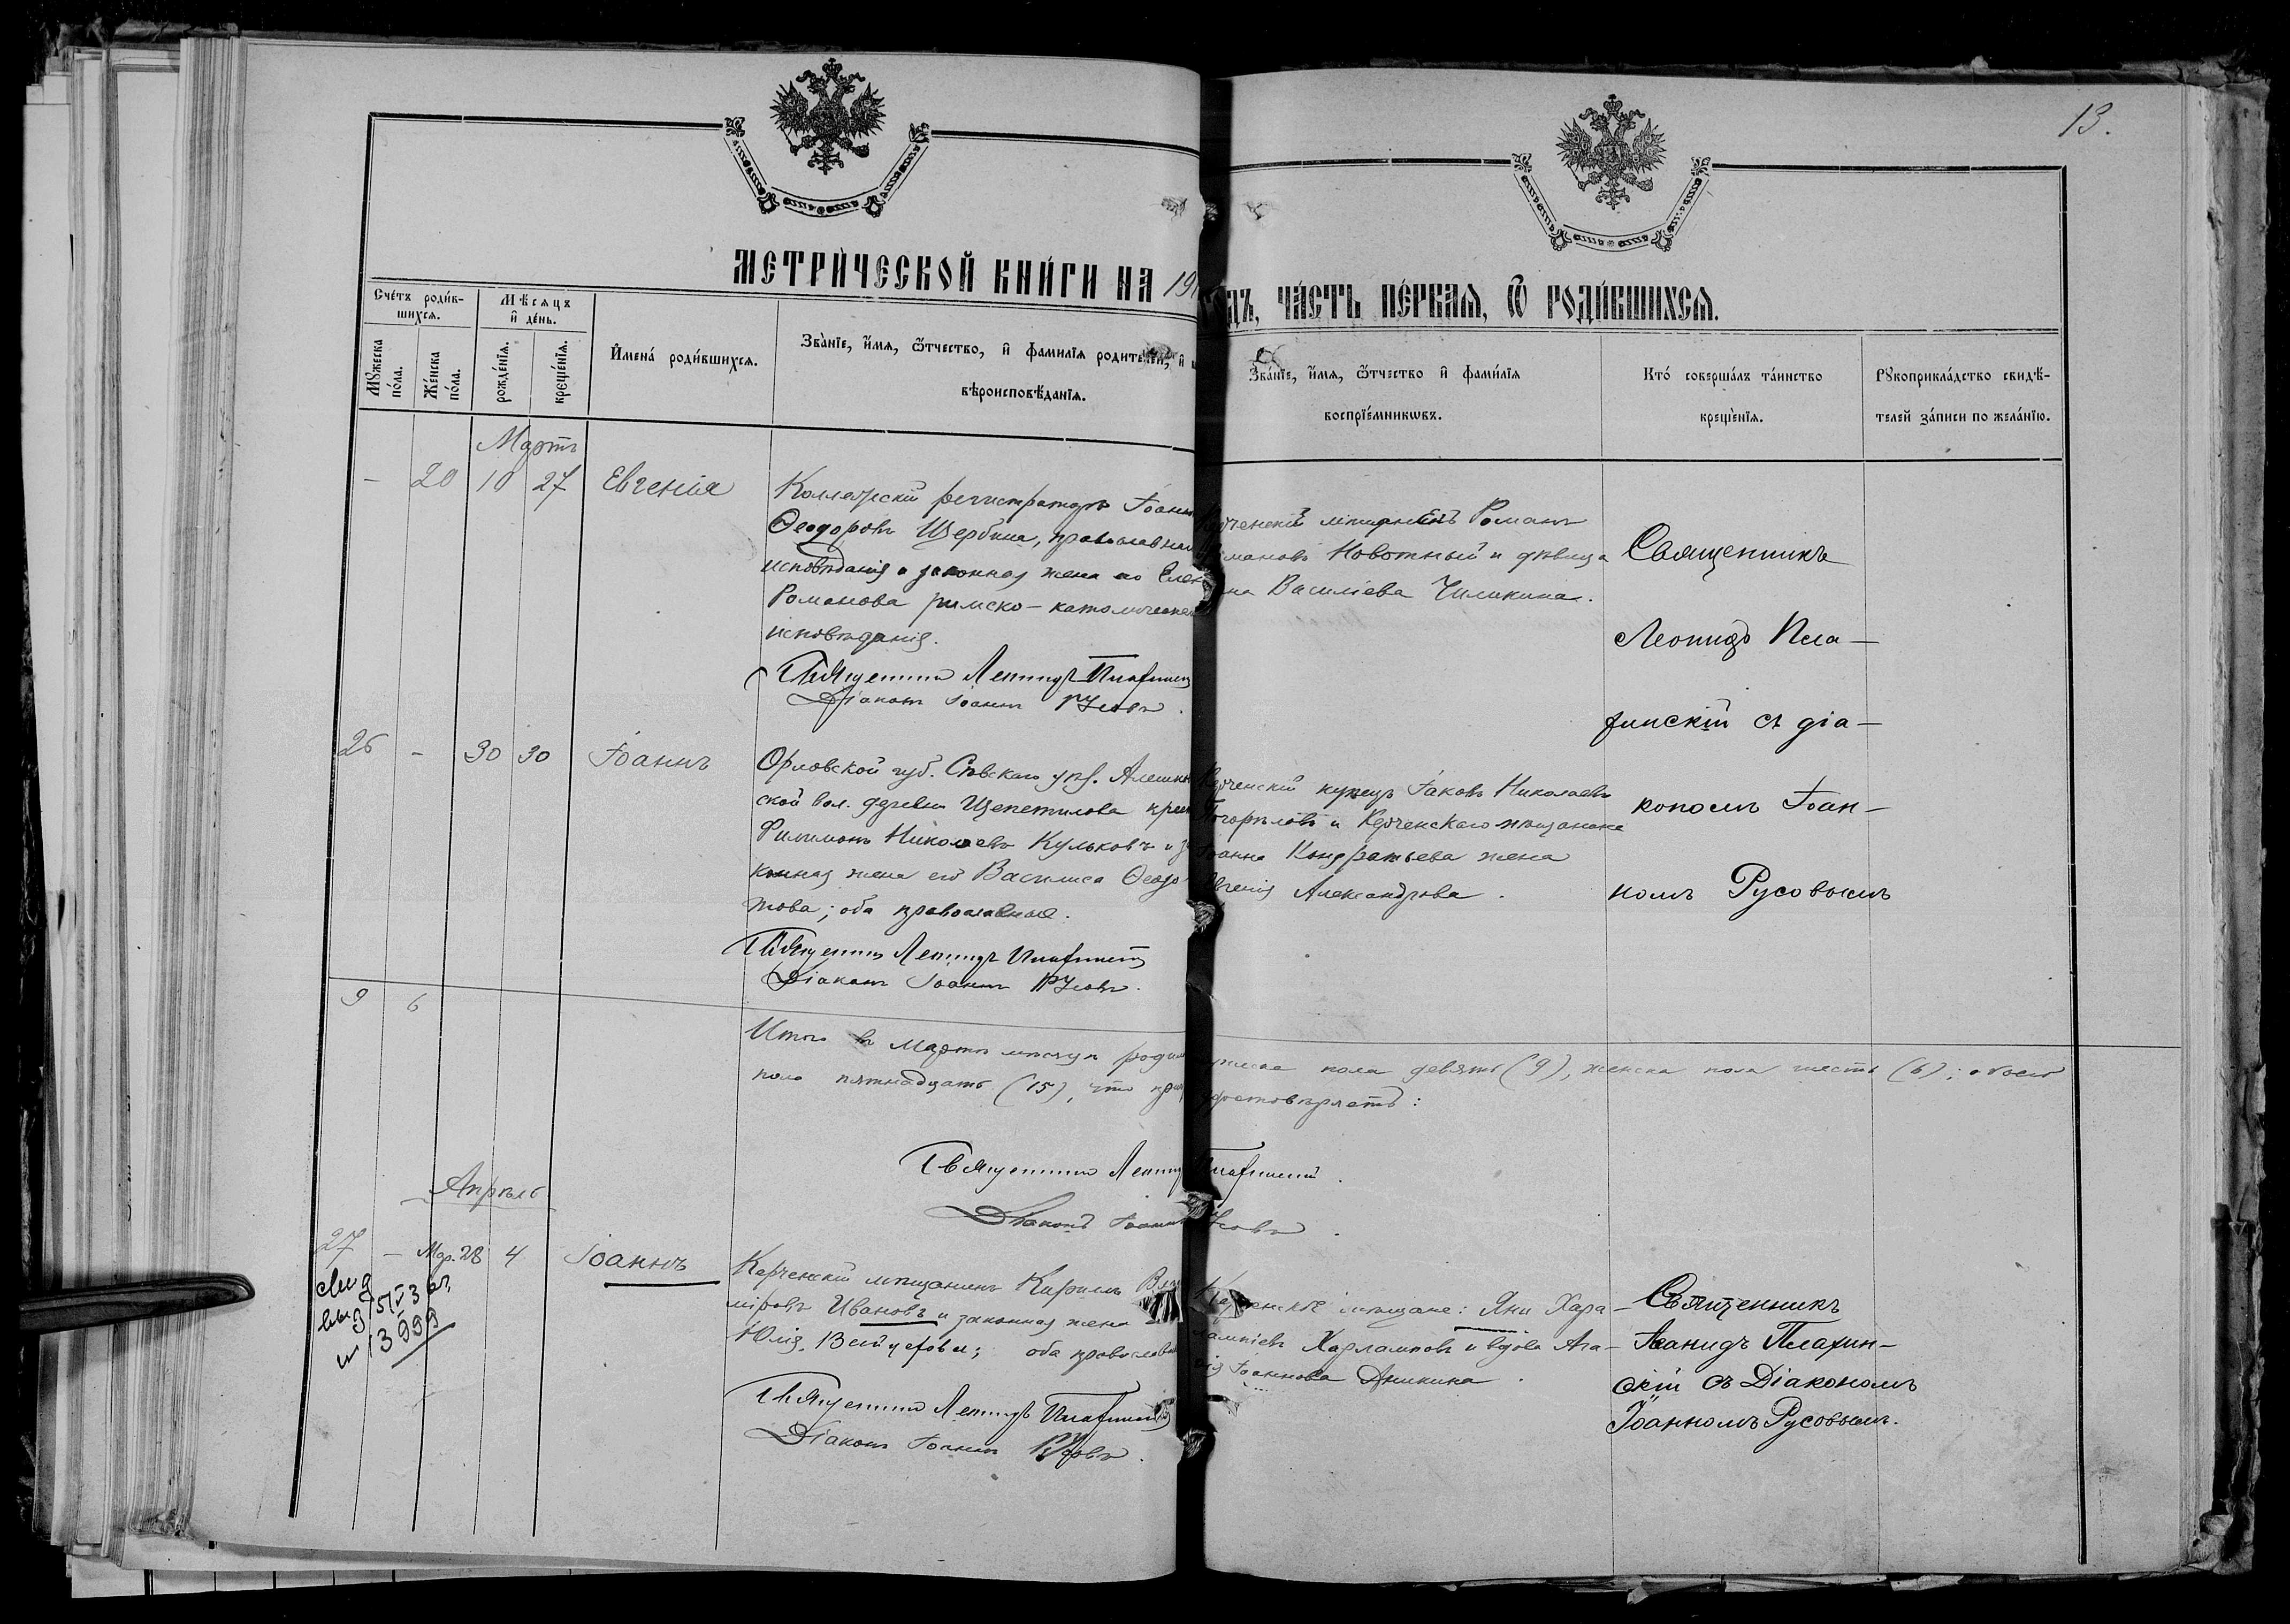 13.
МЕТРИЧЕСКОЙ КНИГИ НА 191
ДЪ, ЧАСТЬ ПЕРВАЯ, Ѿ РОДИВШИХСЯ.
Счетъ родив-
шихся.
Мѣсяцъ
и день.
Мужеска
пола.
Женска
пола.
рожденія.
крещенія.
Имена родившихся.
Званіе, имя, ѿтчество, и фамилія родителей, и
вѣроисповѣданія.
Званіе, имя, ѿтчество и фамилія
воспріемниковъ.
Кто совершалъ таинство
крещенія.
Рукоприкладство свидѣ-
телей записи по желанію.
Мартъ
- 20 10 27 Евгенія
Коллежскій регистраторъ Іоаннъ
Ѳеодоровъ Щербина, православнаго
исповѣданія и законная жена его Елена
Романова римско-католическаго
исповѣданія.
Священникъ Леонидъ Плафинскій
Діаконъ Іоаннъ Русовъ.
Керченскій мѣщанинъ Романъ
Романовъ Новотный и дѣвица
Василіева Чиликина.
Священникъ
Леонидъ Пла-
финскій съ діа-
кономъ Іоан-
номъ Русовымъ
26 - 30 30 Іоаннъ
Орловской губ. Сѣвскаго уѣз. Алешков
ской вол. деревни Щепетилова крест
Филимонъ Николаевъ Кульковъ и за
конная жена его Василиса Ѳедо
това; оба православные.
Священникъ Леонидъ Плафинскій
Діаконъ Іоаннъ Русовъ.
Керченскій купецъ Іаковъ Николаевъ
Погорѣловъ и Керченскаго мѣщанина
Іоанна Кондратьева жена
Евгенія Александрова.
9 6
Итого въ Мартѣ мѣсяцѣ родилось мужеска пола девять (9), женска пола шесть (6); обоего
пола пятнадцать (15), что удостовѣряютъ:
Священникъ Леонидъ Плафинскій.
Діаконъ Іоаннъ Русовъ.
Апрѣль
27 - Мар. 28 4 Іоаннъ
выд 5/V 3
№ 3999
Керченскій мѣщанинъ Кириллъ Влад
міровъ Ивановъ и законная жена
Юлія; оба православные
Священникъ Леонидъ Плафинскій
Діаконъ Іоаннъ Русовъ.
Керченскіе мѣщане: Яни Хара-
лампіевъ Харламповъ и вдова Ага-
Іоаннова Аникина.
Священникъ
Леонидъ Плафин-
скій съ Діакономъ
Іоанномъ Русовымъ.